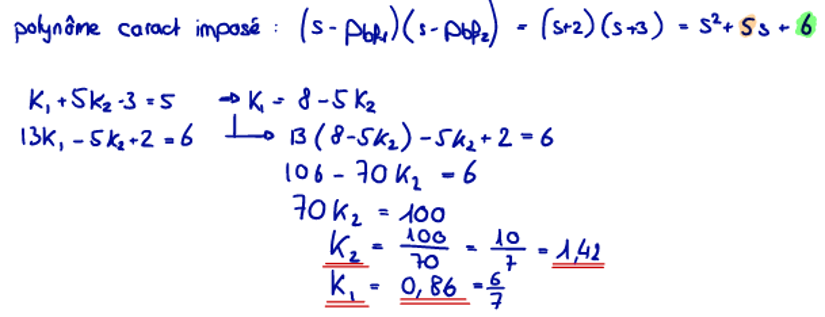 polynôme caract imposé : (s - Pbf₁)(s - Pbf₂) = (s+2)(s+3) = s² + 5s + 6
K₁ + 5K₂ - 3 = 5 → K₁ = 8 - 5K₂
13K₁ - 5K₂ + 2 = 6 → 13(8 - 5K₂) - 5K₂ + 2 = 6
106 - 70K₂ = 6
70K₂ = 100
K₂ = 100/70 = 10/7 = 1,42
K₁ = 0,86 = 6/7